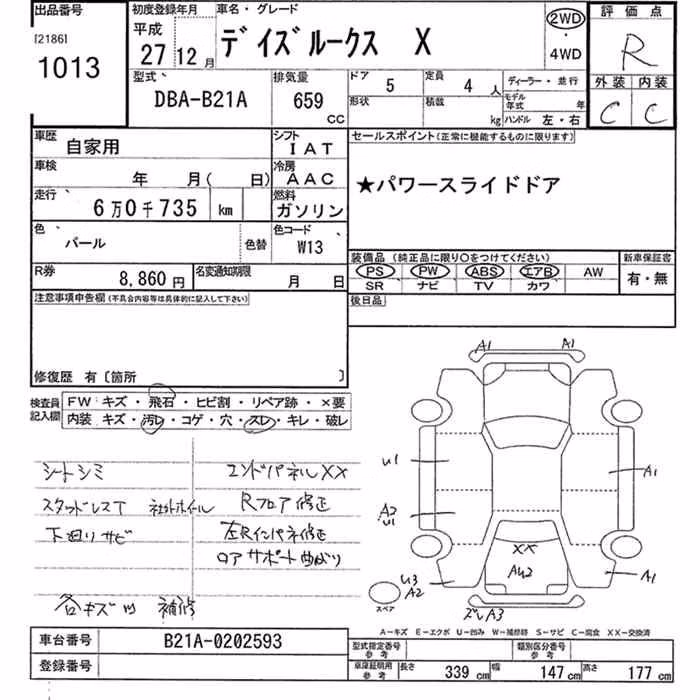 出品番号 初度登録年月 車名・グレード 評価点
[2186] 平成 デイズルークス X 2WD ・ 4WD R
1013 27 12月
型式 排気量 ドア 定員 ディーラー・並行 外装 内装
DBA-B21A 659 CC 5 4人 C C
形状 積載 kg モデル年式 年 ハンドル 左・右
車歴 自家用 シフト IAT セールスポイント(正常に機能するものに限ります)
車検 年 月( 日) 冷房 AAC ★パワースライドドア
走行 6万0千735 km 燃料 ガソリン
色 パール 色替 色コード W13
装備品 (純正品に限り〇をつけてください) 新車保証書
R券 8,860円 名変通知期限 月 日 PS PW ABS エアB AW 有・無
SR ナビ TV カワ
注意事項申告欄(不具合内容等は具体的に記入して下さい) 後日品
修復歴 有〔箇所 〕
検査員記入欄 FW キズ・飛石・ヒビ割・リペア跡・×要
内装 キズ・汚レ・コゲ・穴・スレ・キレ・破レ
シートシミ エンドパネルXX
スタッドレスT 社外ホイール Rフロア修正
下廻りサビ 左Rインパネ修正
ロアサポート曲がり
各キズ凹 補修
A1 A1
U1 A1
A2 U1
XX
AU2
U3 A2 A1
スペア ズレA3
A－キズ E－エクボ U－凹み W－補修跡 S－サビ C－腐食 XX－交換済
車台番号 B21A-0202593 型式指定番号 参考 類別区分番号 参考
登録番号 車庫証明用 参考 長さ 339cm 幅 147cm 高さ 177cm